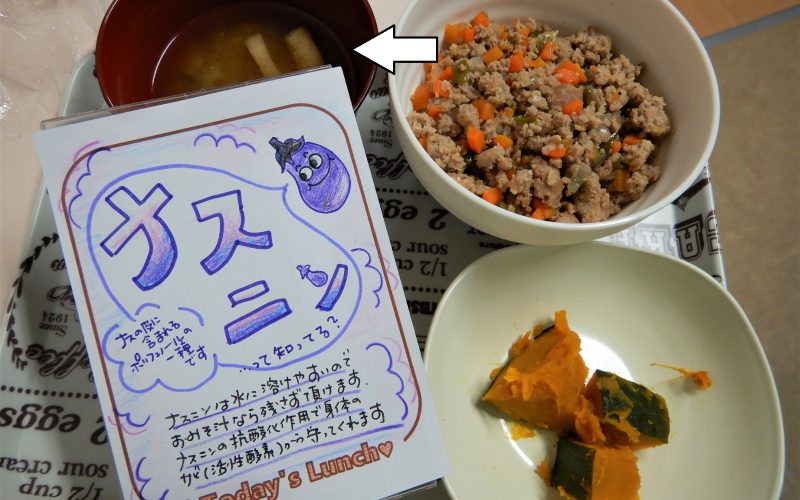 ナスニン
ナスの皮に
含まれる
ポリフェノールの
一種
です
…って知ってる?
ナスニンは水に溶けやすいので
おみそ汁なら残さず頂けます
ナスニンの抗酸化作用で身体の
サビ(活性酸素)から守ってくれます
Today's Lunch
Since
1924
Coffee
2 eggs
1/2 cup
sour cream
2 eggs
1/2 cup
sour cream